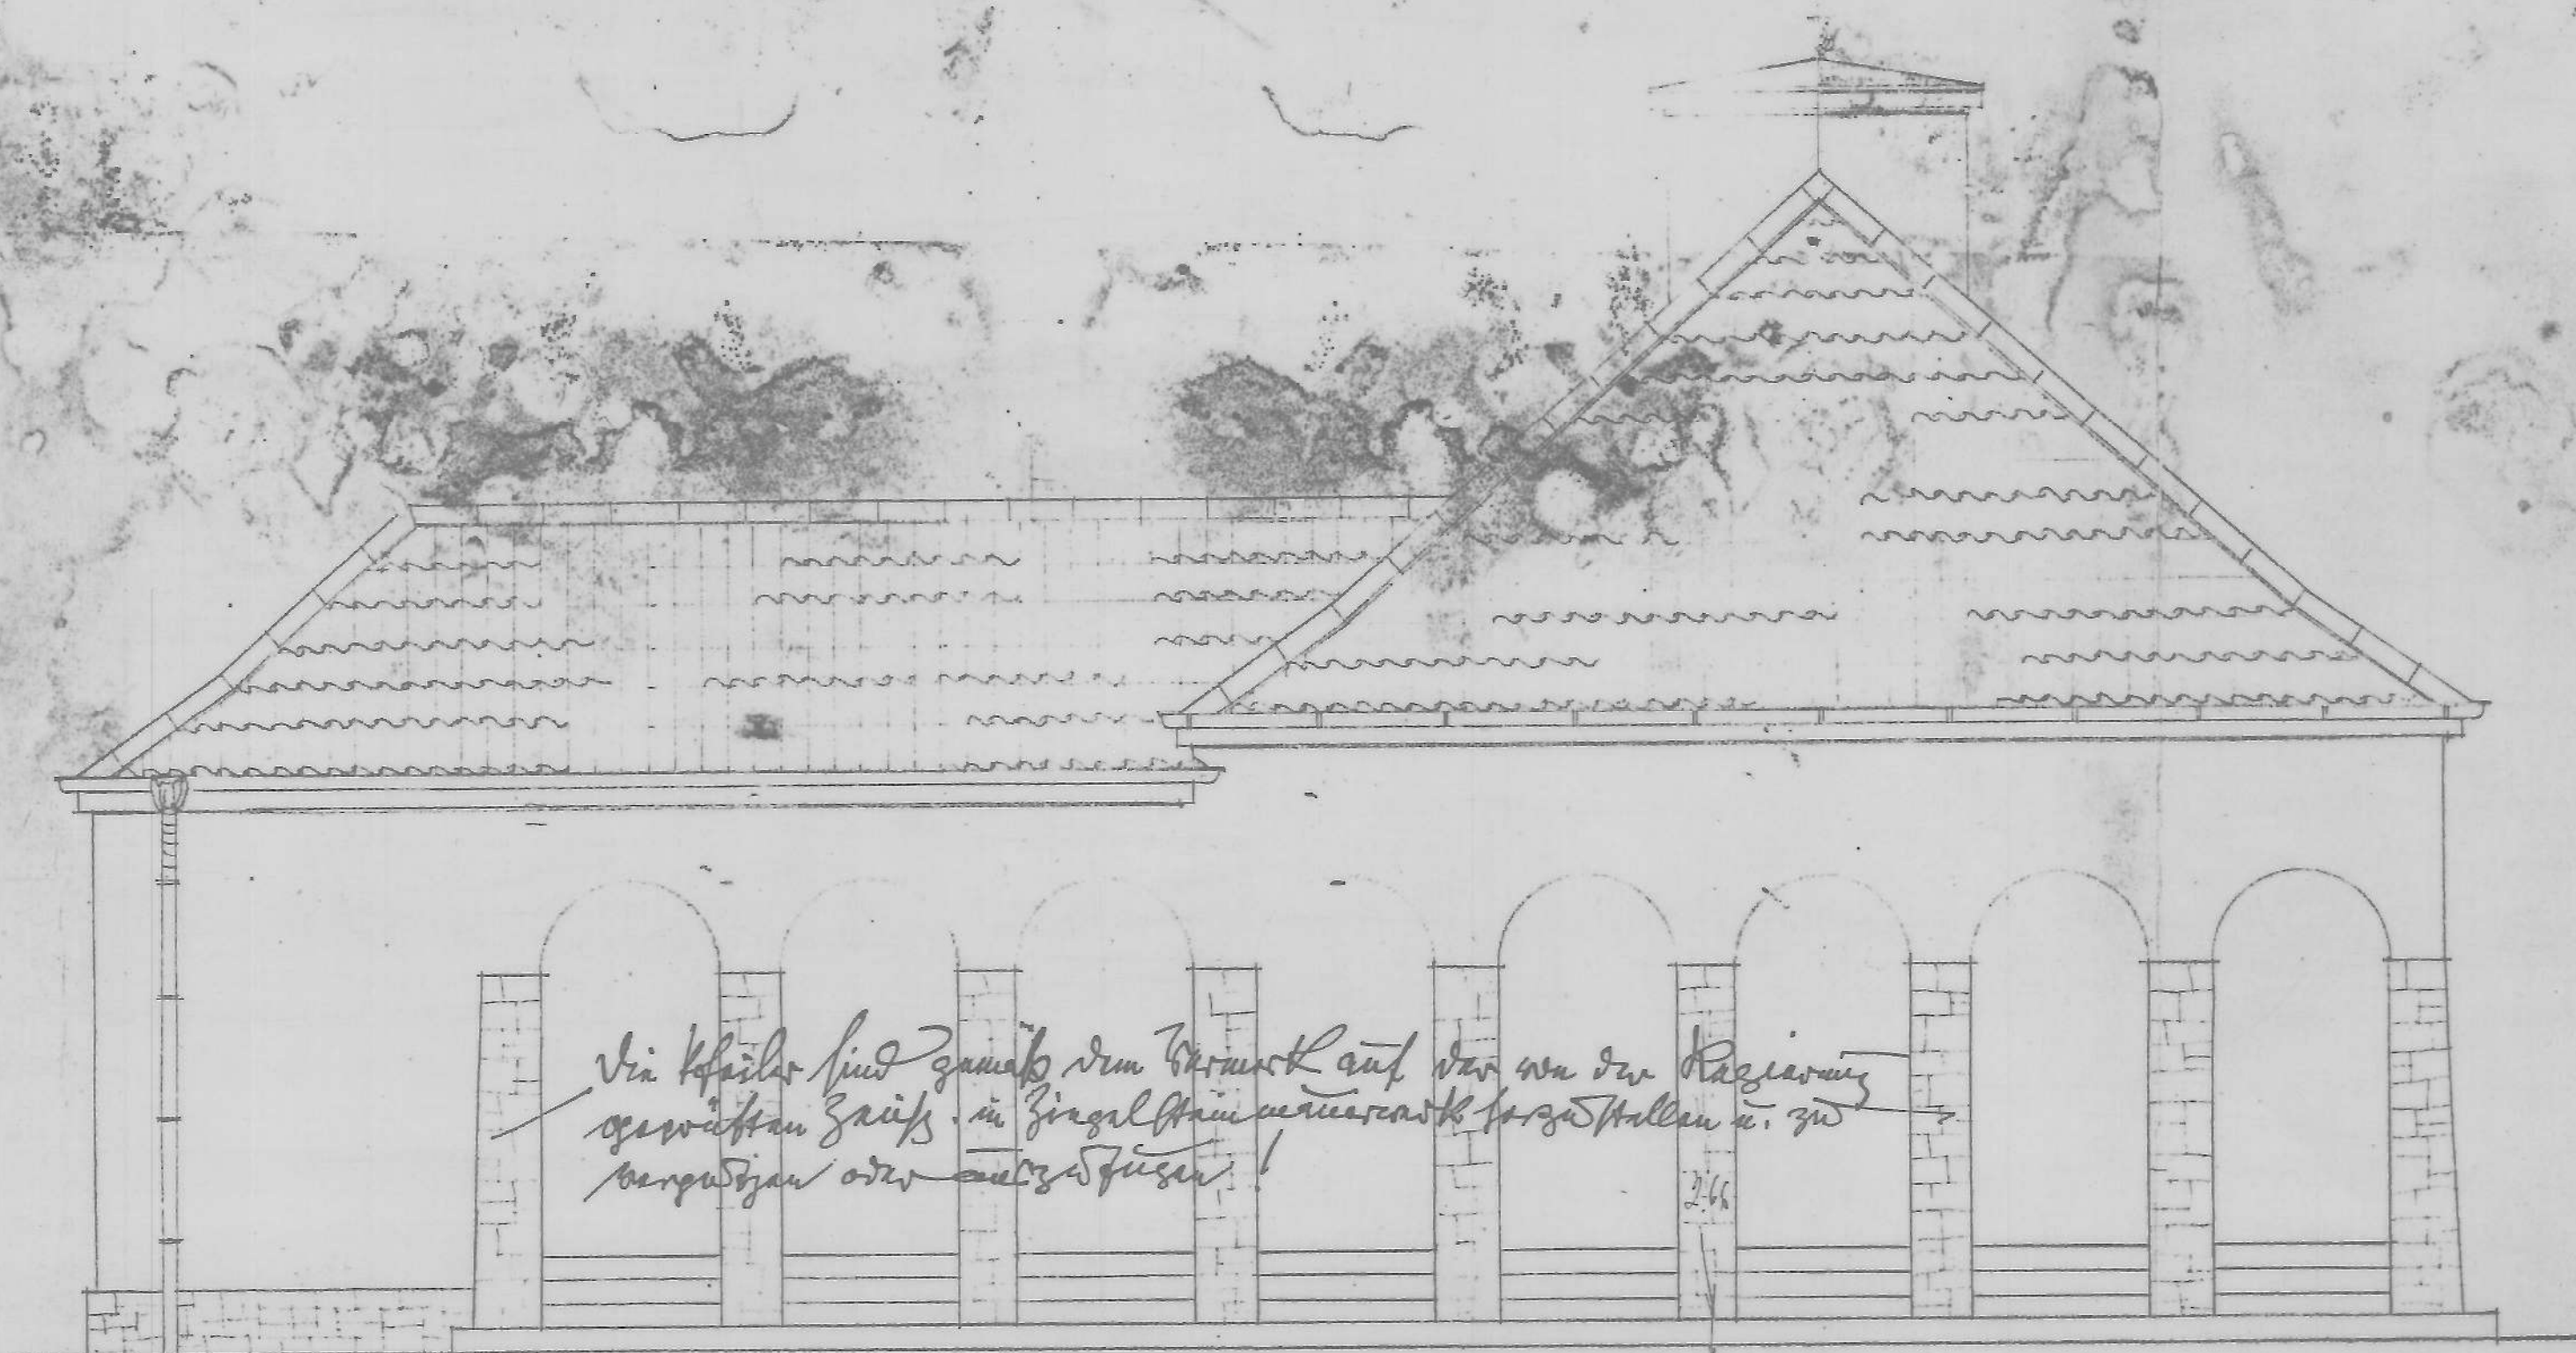 Die Pfeiler sind gemäß dem Vermerk auf der von der Regierung
geprüften Zeichg. in Ziegelsteinmauerwerk herzustellen u. zu
verputzen oder auszufugen!